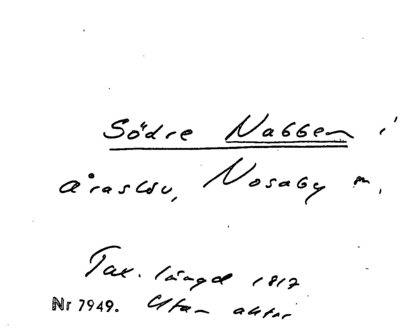 Södre Nabben i
Åraslöv, Nosaby m.
Tax. längd 1817
Nr 7949. Utan aktor